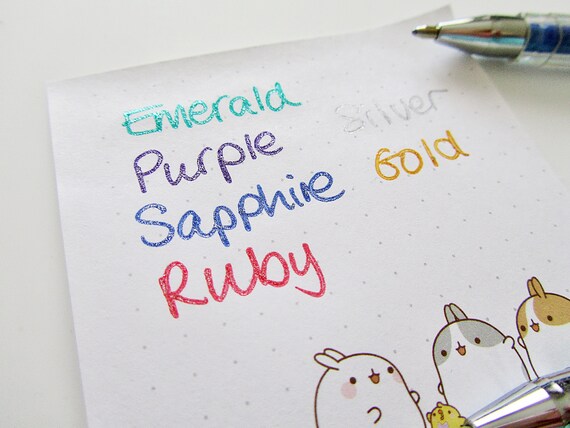 Emerald
Silver
Purple
Gold
Sapphire
Ruby